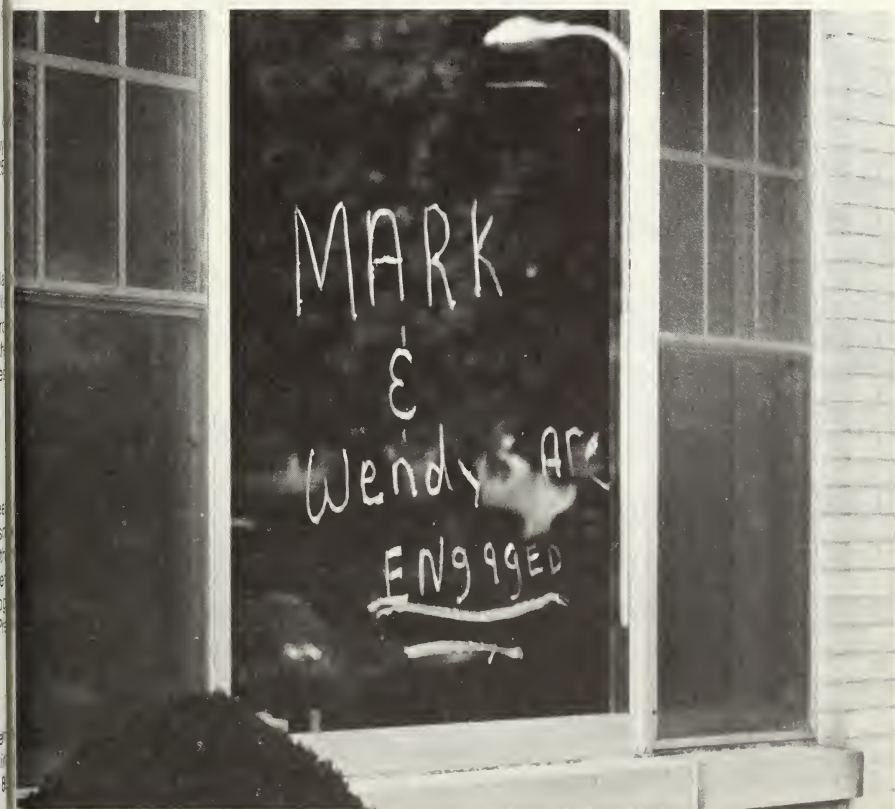 MARK
&
Wendy Are
ENgagED